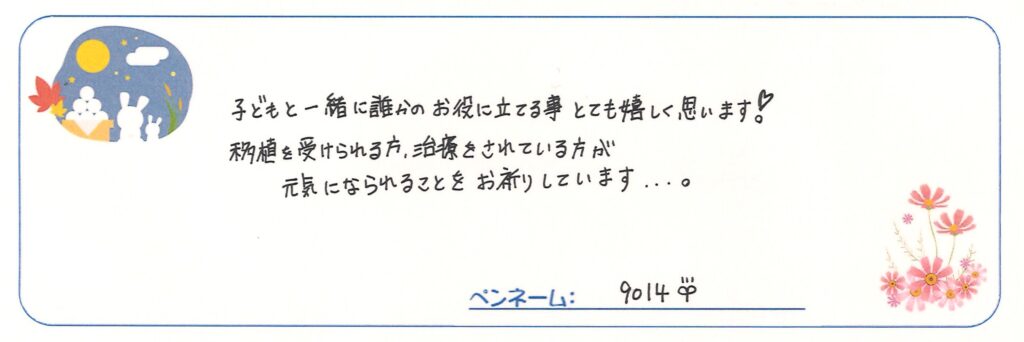 子どもと一緒に誰かのお役に立てる事とても嬉しく思います!
移植を受けられる方、治療をされている方が
元気になられることをお祈りしています...。
ペンネーム: 9014